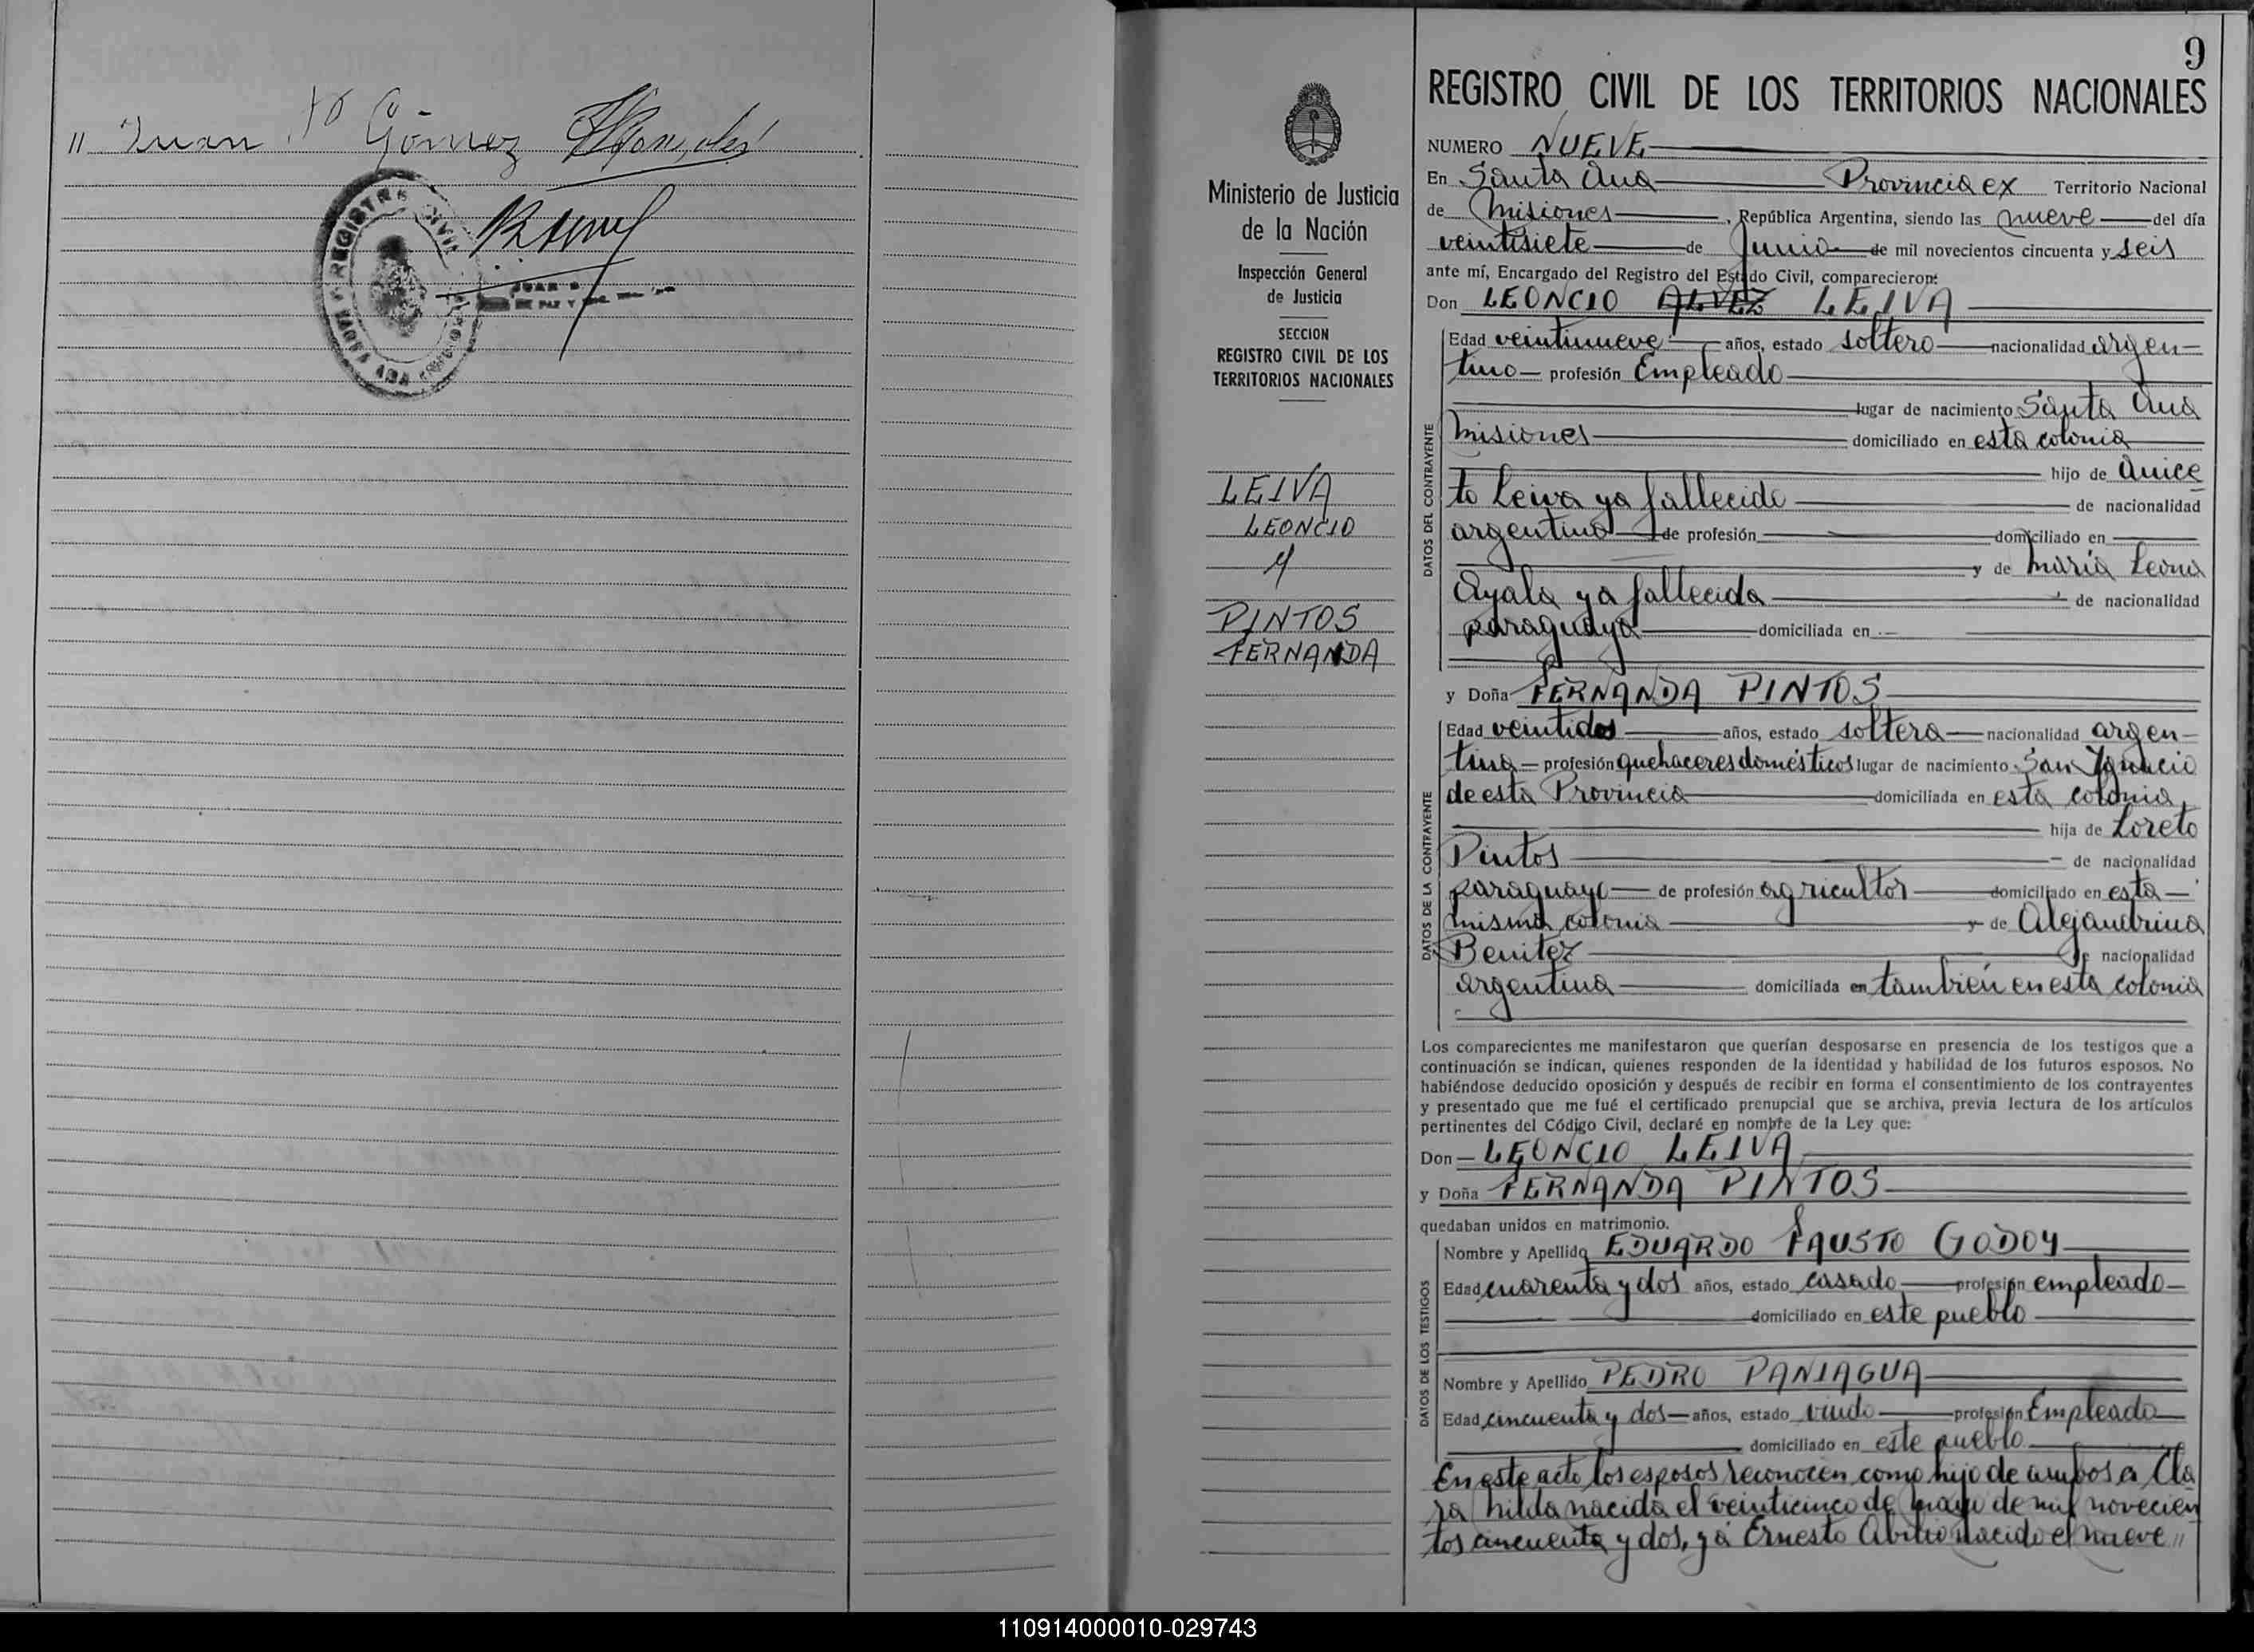 " Juan Gómez
REGISTRO CIVIL
9
REGISTRO CIVIL DE LOS TERRITORIOS NACIONALES
Ministerio de Justicia
de la Nación
Inspección General
de Justicia
SECCION
REGISTRO CIVIL DE LOS
TERRITORIOS NACIONALES
LEIVA
LEONCIO
y
PINTOS
FERNANDA
NUMERO NUEVE
En Santa Ana Provincia ex Territorio Nacional
de Misiones, República Argentina, siendo las nueve del día
veintisiete de Junio de mil novecientos cincuenta y seis
ante mí, Encargado del Registro del Estado Civil, comparecieron:
Don LEONCIO ALVEZ LEIVA
DATOS DEL CONTRAYENTE
Edad veintinueve años, estado soltero nacionalidad argen-
tino profesión Empleado
lugar de nacimiento Santa Ana
Misiones domiciliado en esta colonia
hijo de Anice
to Leiva ya fallecido de nacionalidad
argentino de profesión domiciliado en
y de María Leona
Ayala ya fallecida de nacionalidad
paraguaya domiciliada en
y Doña FERNANDA PINTOS
DATOS DE LA CONTRAYENTE
Edad veintidos años, estado soltera nacionalidad argen-
tina profesión quehaceres domésticos lugar de nacimiento San Ignacio
de esta Provincia domiciliada en esta colonia
hija de Loreto
Pintos de nacionalidad
paraguayo de profesión agricultor domiciliado en esta
misma colonia y de Alejandrina
Benitez de nacionalidad
argentina domiciliada en también en esta colonia
Los comparecientes me manifestaron que querían desposarse en presencia de los testigos que a
continuación se indican, quienes responden de la identidad y habilidad de los futuros esposos. No
habiéndose deducido oposición y después de recibir en forma el consentimiento de los contrayentes
y presentado que me fué el certificado prenupcial que se archiva, previa lectura de los artículos
pertinentes del Código Civil, declaré en nombre de la Ley que:
Don LEONCIO LEIVA
y Doña FERNANDA PINTOS
quedaban unidos en matrimonio.
DATOS DE LOS TESTIGOS
Nombre y Apellido EDUARDO FAUSTO GODOY
Edad cuarenta y dos años, estado casado profesión empleado
domiciliado en este pueblo
Nombre y Apellido PEDRO PANIAGUA
Edad cincuenta y dos años, estado viudo profesión Empleado
domiciliado en este pueblo
En este acto los esposos reconocen como hijo de ambos a Cla
ra hilda nacida el veinticinco de mayo de mil novecien
tos cincuenta y dos, y a Ernesto Abilio nacido el nueve "
110914000010-029743